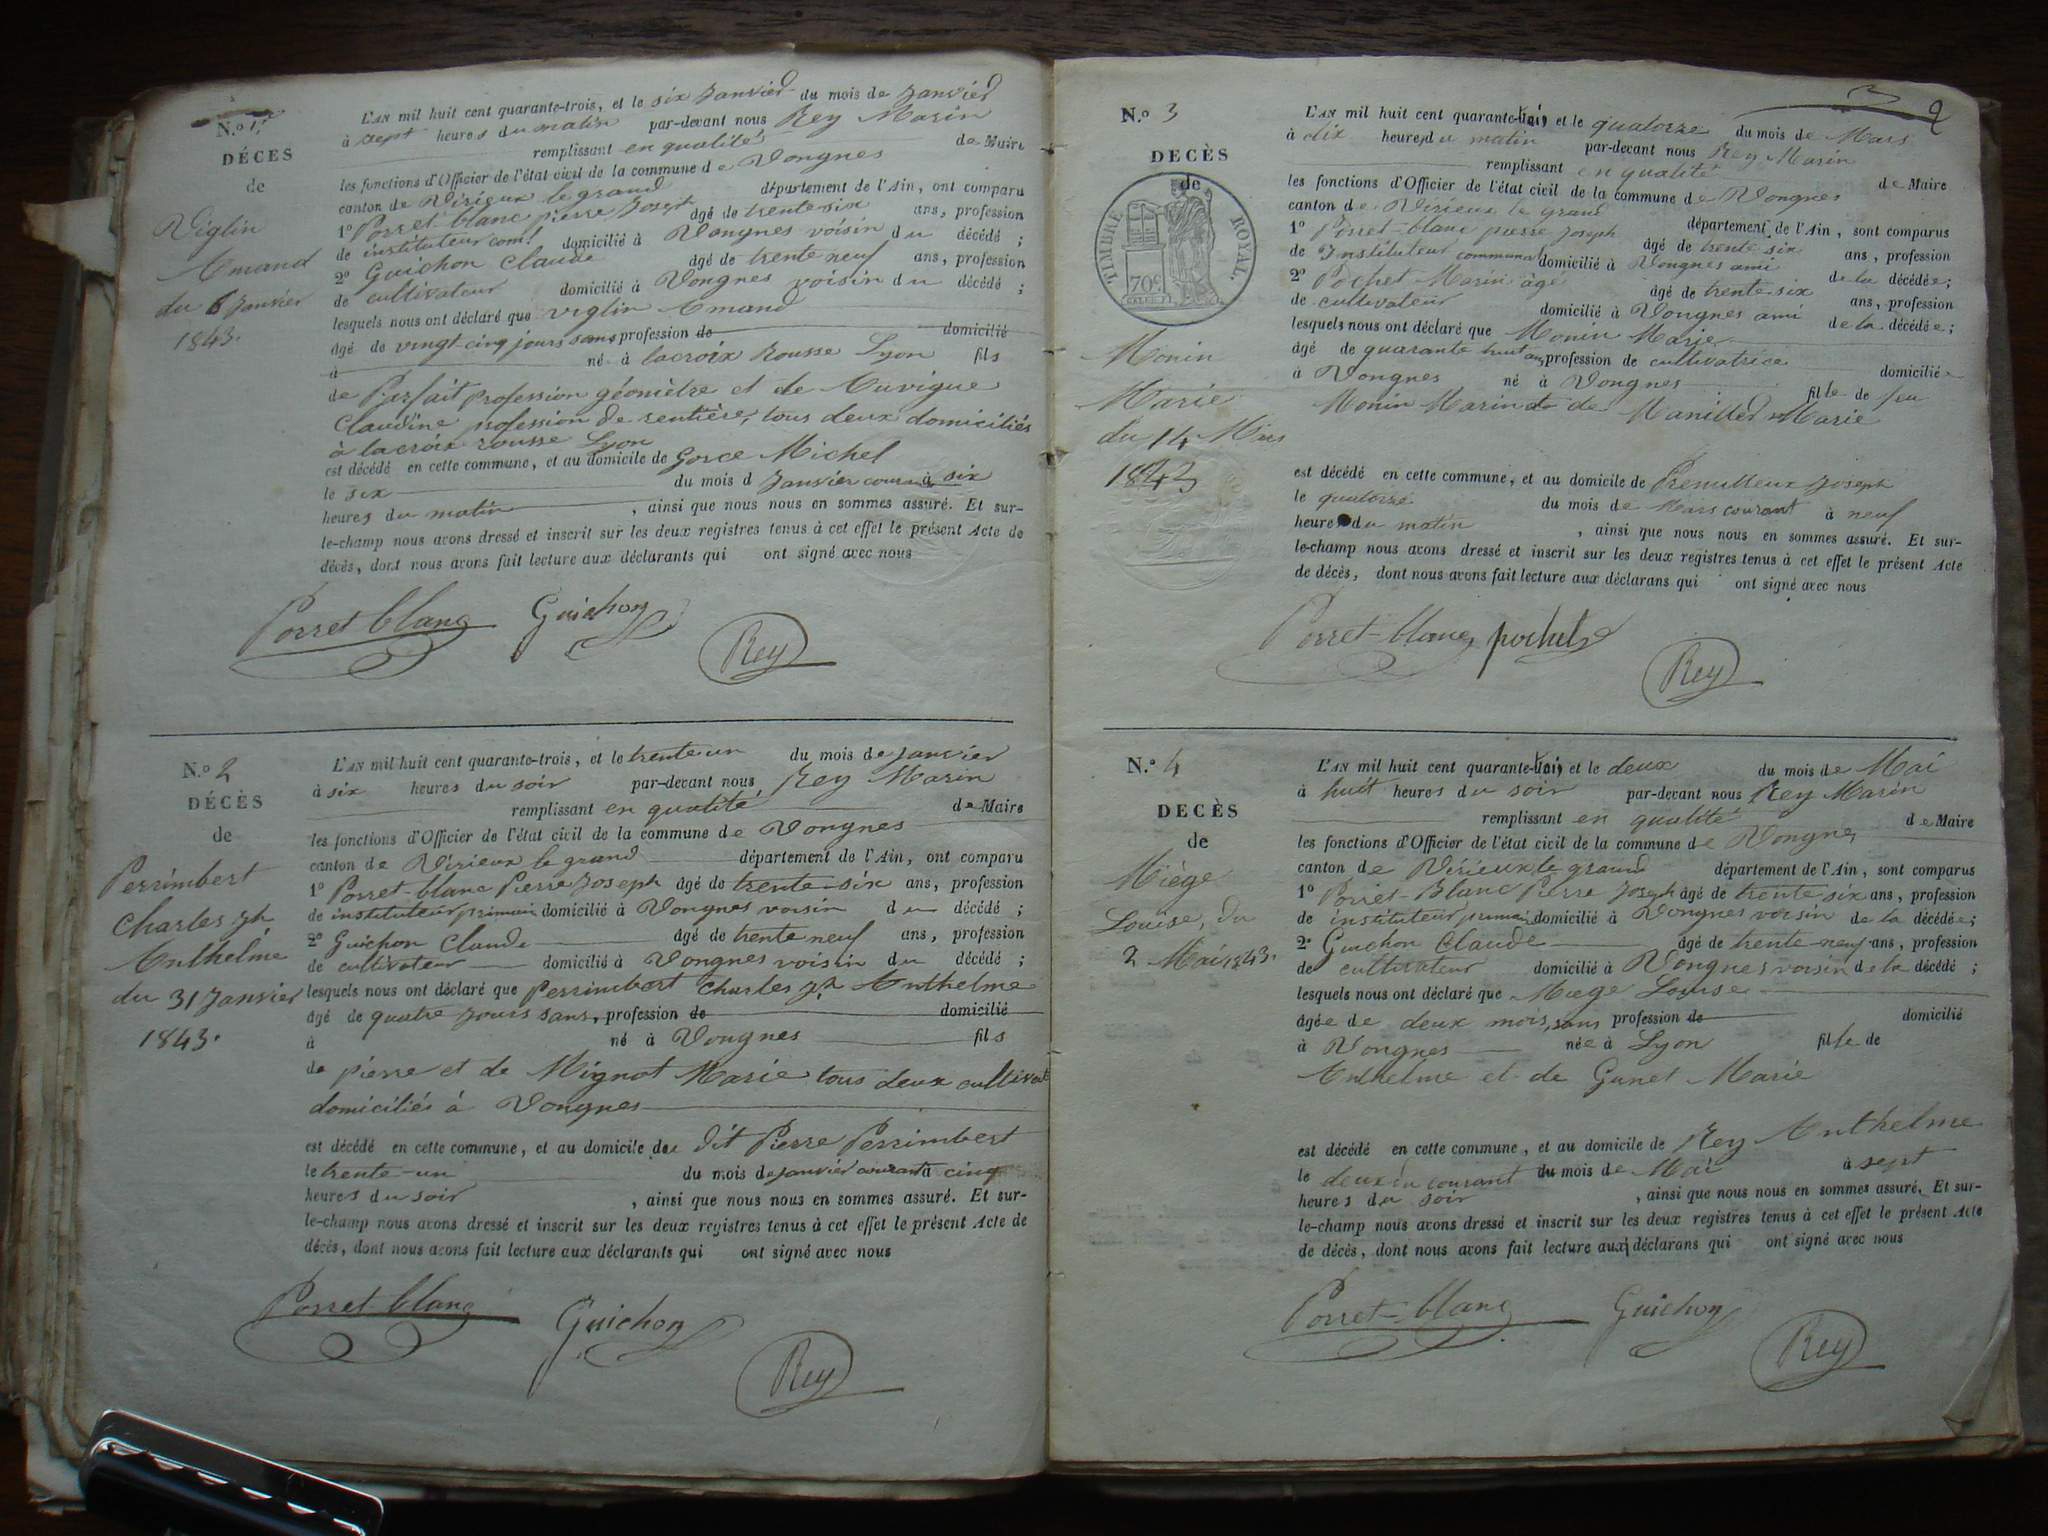 N.o 1.
DÉCES
de
Viglin
Amand
du 6 Janvier
1843.
L'AN mil huit cent quarante-trois, et le six Janvier du mois de Janvier
à sept heures du matin par-devant nous Rey Marin
remplissant en qualité de Maire
les fonctions d'Officier de l'état civil de la commune de Vongnes
canton de Virieux le grand département de l'Ain, ont comparu
1o Porret-blanc pierre Joseph âgé de trente six ans, profession
de instituteur com.l domicilié à Vongnes voisin du décédé ;
2o Guichon Claude âgé de trente neuf ans, profession
de cultivateur domicilié à Vongnes voisin du décédé ;
lesquels nous ont déclaré que viglin Amand
âgé de vingt cinq jours sans profession de domicilié
à né à lacroix Rousse Lyon fils
de Parfait profession géomètre et de Cuvigue
Claudine profession de rentière, tous deux domiciliés
à lacroix rousse Lyon
est décédé en cette commune, et au domicile de Gorce Michel
le six du mois d Janvier courant à six
heures du matin , ainsi que nous nous en sommes assuré. Et sur-
le-champ nous avons dressé et inscrit sur les deux registres tenus à cet effet le présent Acte de
décès, dont nous avons fait lecture aux déclarants qui ont signé avec nous
Porret blanc Guichon Rey
N.o 2
DÉCÈS
de
Perrimbert
Charles jh
Anthelme
du 31 Janvier
1843.
L'AN mil huit cent quarante-trois, et le trente un du mois de Janvier
à six heures du soir par-devant nous Rey Marin
remplissant en qualité de Maire
les fonctions d'Officier de l'état civil de la commune de Vongnes
canton de Virieux le grand département de l'Ain, ont comparu
1o Porret-blanc Pierre Joseph âgé de trente-six ans, profession
de instituteur primair domicilié à Vongnes voisin du décédé ;
2o Guichon Claude âgé de trente neuf ans, profession
de cultivateur domicilié à Vongnes voisin du décédé ;
lesquels nous ont déclaré que Perrimbert Charles jh Anthelme
âgé de quatre jours sans, profession de domicilié
à né à Vongnes fils
de pierre et de Mignot Marie tous deux cultivat
domiciliés à Vongnes
est décédé en cette commune, et au domicile du dit Pierre Perrimbert
le trente-un du mois de janvier courant à cinq
heures du soir , ainsi que nous nous en sommes assuré. Et sur-
le-champ nous avons dressé et inscrit sur les deux registres tenus à cet effet le présent Acte de
décès, dont nous avons fait lecture aux déclarants qui ont signé avec nous
Porret-blanc Guichon Rey
2
N.o 3
DECÈS
de
TIMBRE ROYAL.
70c
Monin
Marie
du 14 Mars
1843
L'AN mil huit cent quarante-trois, et le quatorze du mois de Mars
à dix heures du matin par-devant nous Rey Marin
remplissant en qualité de Maire
les fonctions d'Officier de l'état civil de la commune de Vongnes
canton de Virieux le grand département de l'Ain, sont comparus
1o Porret-blanc pierre Joseph âgé de trente six ans, profession
de Instituteur communal domicilié à Vongnes ami de la décédée;
2o Pochet Marin âgé âgé de trente six ans, profession
de cultivateur domicilié à Vongnes ami de la décédée;
lesquels nous ont déclaré que Monin Marie
âgé de quarante huit ans profession de cultivatrice domiciliée
à Vongnes né à Vongnes fille de feu
Monin Marin et de Marie
est décédé en cette commune, et au domicile de Joseph
le quatorze du mois de Mars courant à neuf
heure du matin , ainsi que nous nous en sommes assuré. Et sur-
le-champ nous avons dressé et inscrit sur les deux registres tenus à cet effet le présent Acte
de décès, dont nous avons fait lecture aux déclarans qui ont signé avec nous
Porret-blanc pochet Rey
N.o 4
DECÈS
de
Miège
Louise, du
2 Mai 1843.
L'AN mil huit cent quarante-trois, et le deux du mois de Mai
à huit heures du soir par-devant nous Rey Marin
remplissant en qualité de Maire
les fonctions d'Officier de l'état civil de la commune de Vongnes
canton de Virieux le grand département de l'Ain, sont comparus
1o Porret-Blanc Pierre Joseph âgé de trente six ans, profession
de instituteur primai domicilié à Vongnes voisin de la décédée;
2o Guichon Claude âgé de trente-neuf ans, profession
de cultivateur domicilié à Vongnes voisin de la décédé ;
lesquels nous ont déclaré que Miège Louise
âgée de deux mois, sans profession de domicilié
à Vongnes née à Lyon fille de
Anthelme et de Gunet Marie
est décédé en cette commune, et au domicile de Rey Anthelme
le deux du courant du mois de Mai à sept
heures du soir , ainsi que nous nous en sommes assuré. Et sur-
le-champ nous avons dressé et inscrit sur les deux registres tenus à cet effet le présent Acte
de décès, dont nous avons fait lecture aux déclarans qui ont signé avec nous
Porret-blanc Guichon Rey